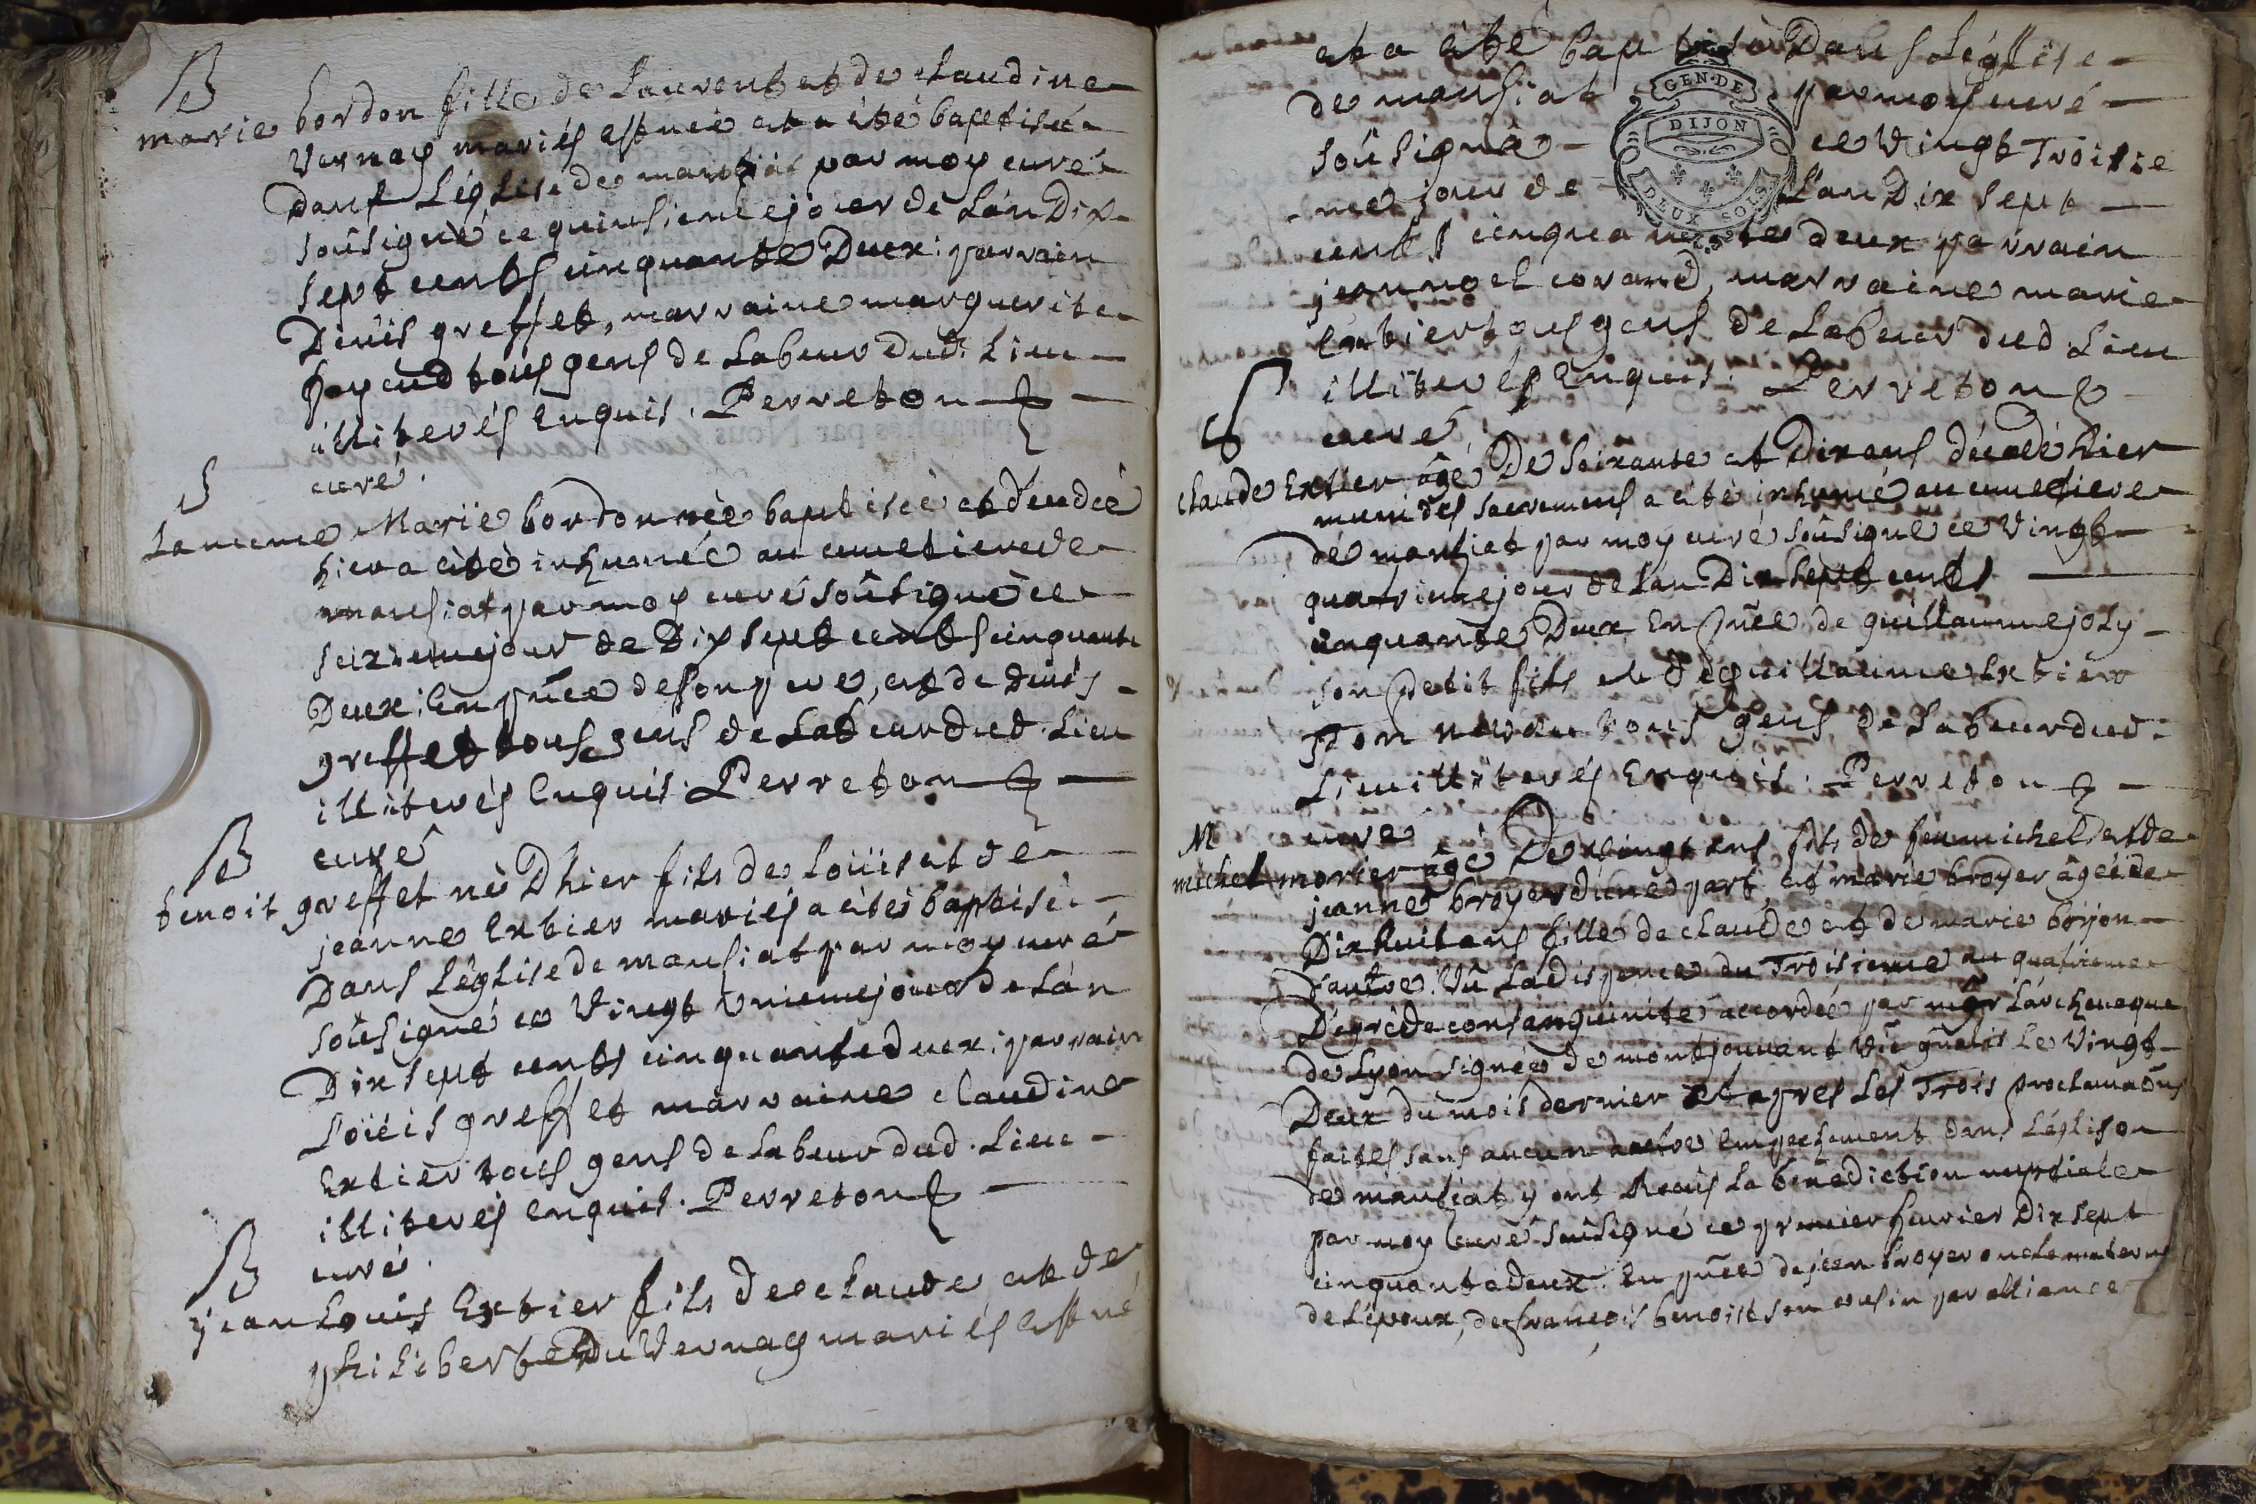 B
marie bordon fille de Laurent et de claudine
Vernay mariés est neé et a été baptiseé
Dans L'église de mansiat par moy curé
soûsigné ce quinsiemejour de L'an Dix
sept cents cinquante Deux: parrain
Dénis greffet, marraine marguerite
tous gens de Labeur dud. Lieu
illiterés Enquis. Perreton
curé.
S
La meme Marie bordon neé baptiseé et décedeé
hier a été inhumée au cimetiere de
mansiat par moy curé soûsigné ce
seiziemejour de Dix sept cents cinquante
Deux: En pñce de son pere, et de Dénis
greffet tous gens de Labeur dud. Lieu
illiterés Enquis. Perreton
curé
B
benoit greffet né D'hier fils de Loüis et de
jeanne Extier mariés a étés baptisé
Dans L'église de mansiat par moy curé
soûsigné ce Vingt Uniemejour de L'an
Dix sept cents cinquante deux: parrain
Loüis greffet marraine claudine
Extier tous gens de Labeur dud. Lieu
illiterés enquis. Perreton
curé.
B
jean Louis Extier fils de claude et de
philiberte Du Vernay mariés est né
et a été baptisé Dans L'église
de mansiat par moy curé
soûsigné ce Vingt Troisie
me jour de L'an Dix sept
cents cinquante deux parrain
jean noel corand, marraine marie
Extier tous gens de Labeur dud. Lieu
illiterés Enquis. Perreton
curé
GEN. DE
DIJON
DEUX SOLS
S
claude Extier âgé De soixante et Dix ans décedé hier
muni des sacremens a été inhumé au cimetiere
de mansiat par moy curé soûsigné ce Vingt
quatriemejour de L'an Dix sept cents
cinquante Deux En pñce de guillaume joly
son petit fils et de guillaume Extier
son neveu tous gens de Labeur dud.
Lieu illiterés Enquis. Perreton
curé
M
michel morier âgé De Vingt ans fils de feu michel et de
jeanne broyer d'une part, et marie broyer âgeé de
Dix huit ans fille de claude et de marie bojon
D'autre. Vû La dispence du Troisieme au quatrieme
Degré de consanguinité accordeé par mgr L'archeveque
de Lyon signeé de montjouvant Vic gñal is Le Vingt
Deux du mois dernier et apres Les Trois proclamaõns
faites sans aucun autre empechement dans L'église
de mansiat y ont Reçûs La benediction nuptiale
par moy Curé soûsigné ce premier fevrier Dix sept
cinquante deux: En pñce de jean broyer oncle maternel
de L'epoux, de françois benoist son cousin par alliance